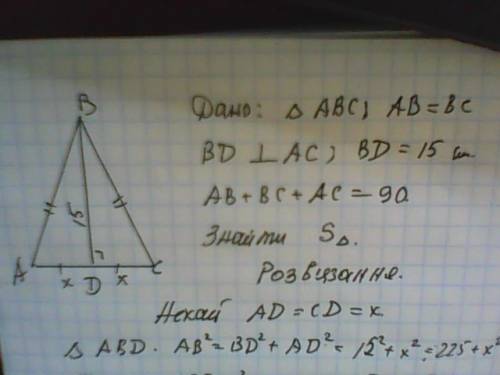 B
Дано: △ ABC; AB = BC
BD ⊥ AC; BD = 15 см.
AB + BC + AC = 90
15
Знайти S△.
A x D x C
Розвязання.
Нехай AD = CD = x.
△ ABD. AB² = BD² + AD² = 15² + x² = 225 + x²